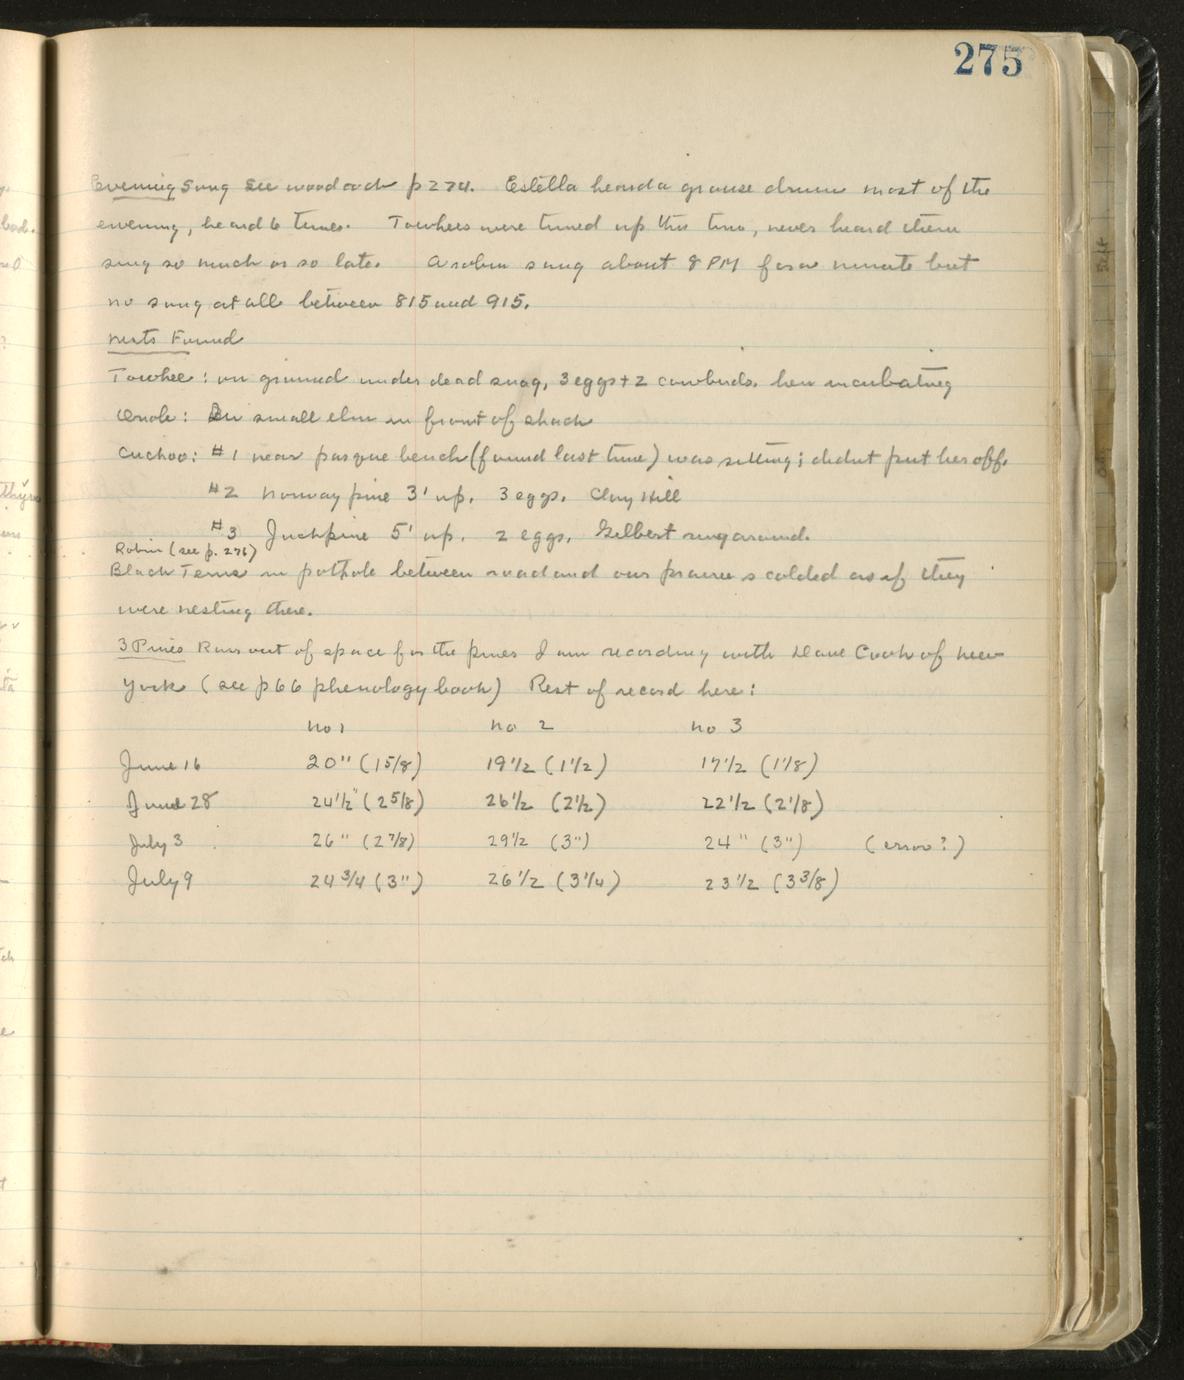 275
Evening Song See woodcock p 274. Estella heard a grouse drum most of the
evening, heard 6 times. Towhees were tuned up this time, never heard them
sing so much or so late. A robin sang about 8 PM for a minute but
no song at all between 815 and 915.
Nests Found
Towhee: on ground under dead snag, 3 eggs + 2 cowbirds. hen incubating
Oriole: In small elm in front of shack
Cuckoo: #1 near pasque bench (found last time) was sitting; didnt put her off.
#2 Norway pine 3' up. 3 eggs. Clay Hill
#3 Jackpine 5' up. 2 eggs. Gilbert ringaround.
Robin (see p. 276)
Black Terns in pothole between road and our prairie scolded as if they
were nesting there.
3 Pines Ran out of space for the pines I am recording with Dave Cook of New
York (see p 66 phenology book) Rest of record here:
no 1 no 2 no 3
June 16 20" (1 5/8) 19 1/2 (1 1/2) 17 1/2 (1 1/8)
June 28 24 1/2" (2 5/8) 26 1/2 (2 1/2) 22 1/2 (2 1/8)
July 3 26" (2 7/8) 29 1/2 (3") 24" (3") (error?)
July 9 24 3/4 (3") 26 1/2 (3 1/4) 23 1/2 (3 3/8)